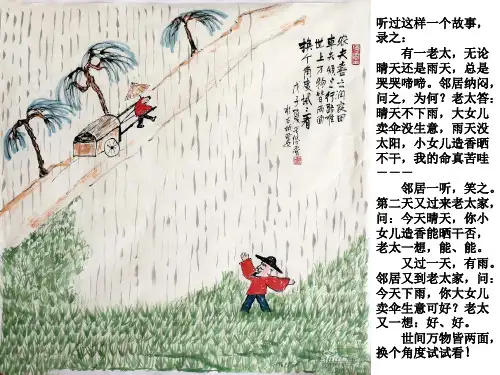 农夫喜之润良田
车夫烦之行路难
世上万物皆两面
换个角度试试看
戊子夏
听过这样一个故事，
录之：
有一老太，无论
晴天还是雨天，总是
哭哭啼啼。邻居纳闷，
问之，为何？老太答：
晴天不下雨，大女儿
卖伞没生意，雨天没
太阳，小女儿造香晒
不干，我的命真苦哇
———
邻居一听，笑之。
第二天又过来老太家，
问：今天晴天，你小
女儿造香能晒干否，
老太一想，能、能。
又过一天，有雨。
邻居又到老太家，问：
今天下雨，你大女儿
卖伞生意可好？老太
又一想：好、好。
世间万物皆两面，
换个角度试试看！